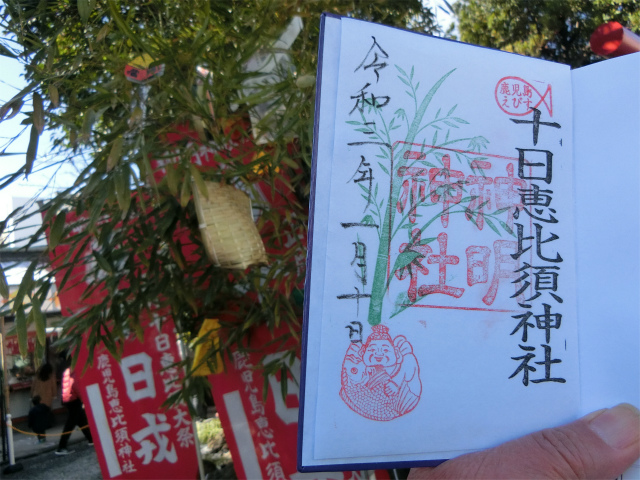 十日恵比須神社
鹿児島
えびす
神明
神社
令和二年一月十日
十日戎
大祭
鹿児島恵比須神社
日戎
鹿児島恵比須